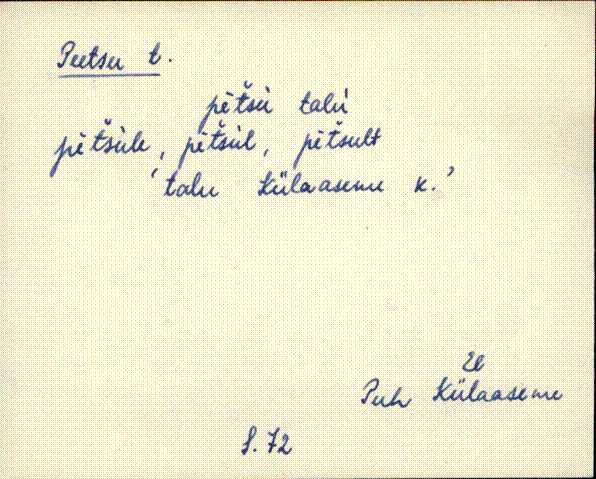 Peetsu t.
pētšù talù
pētšùle, pētšùl, pētšult
'talu Külaaseme k.'
Ee
Puh Külaaseme
S. 72